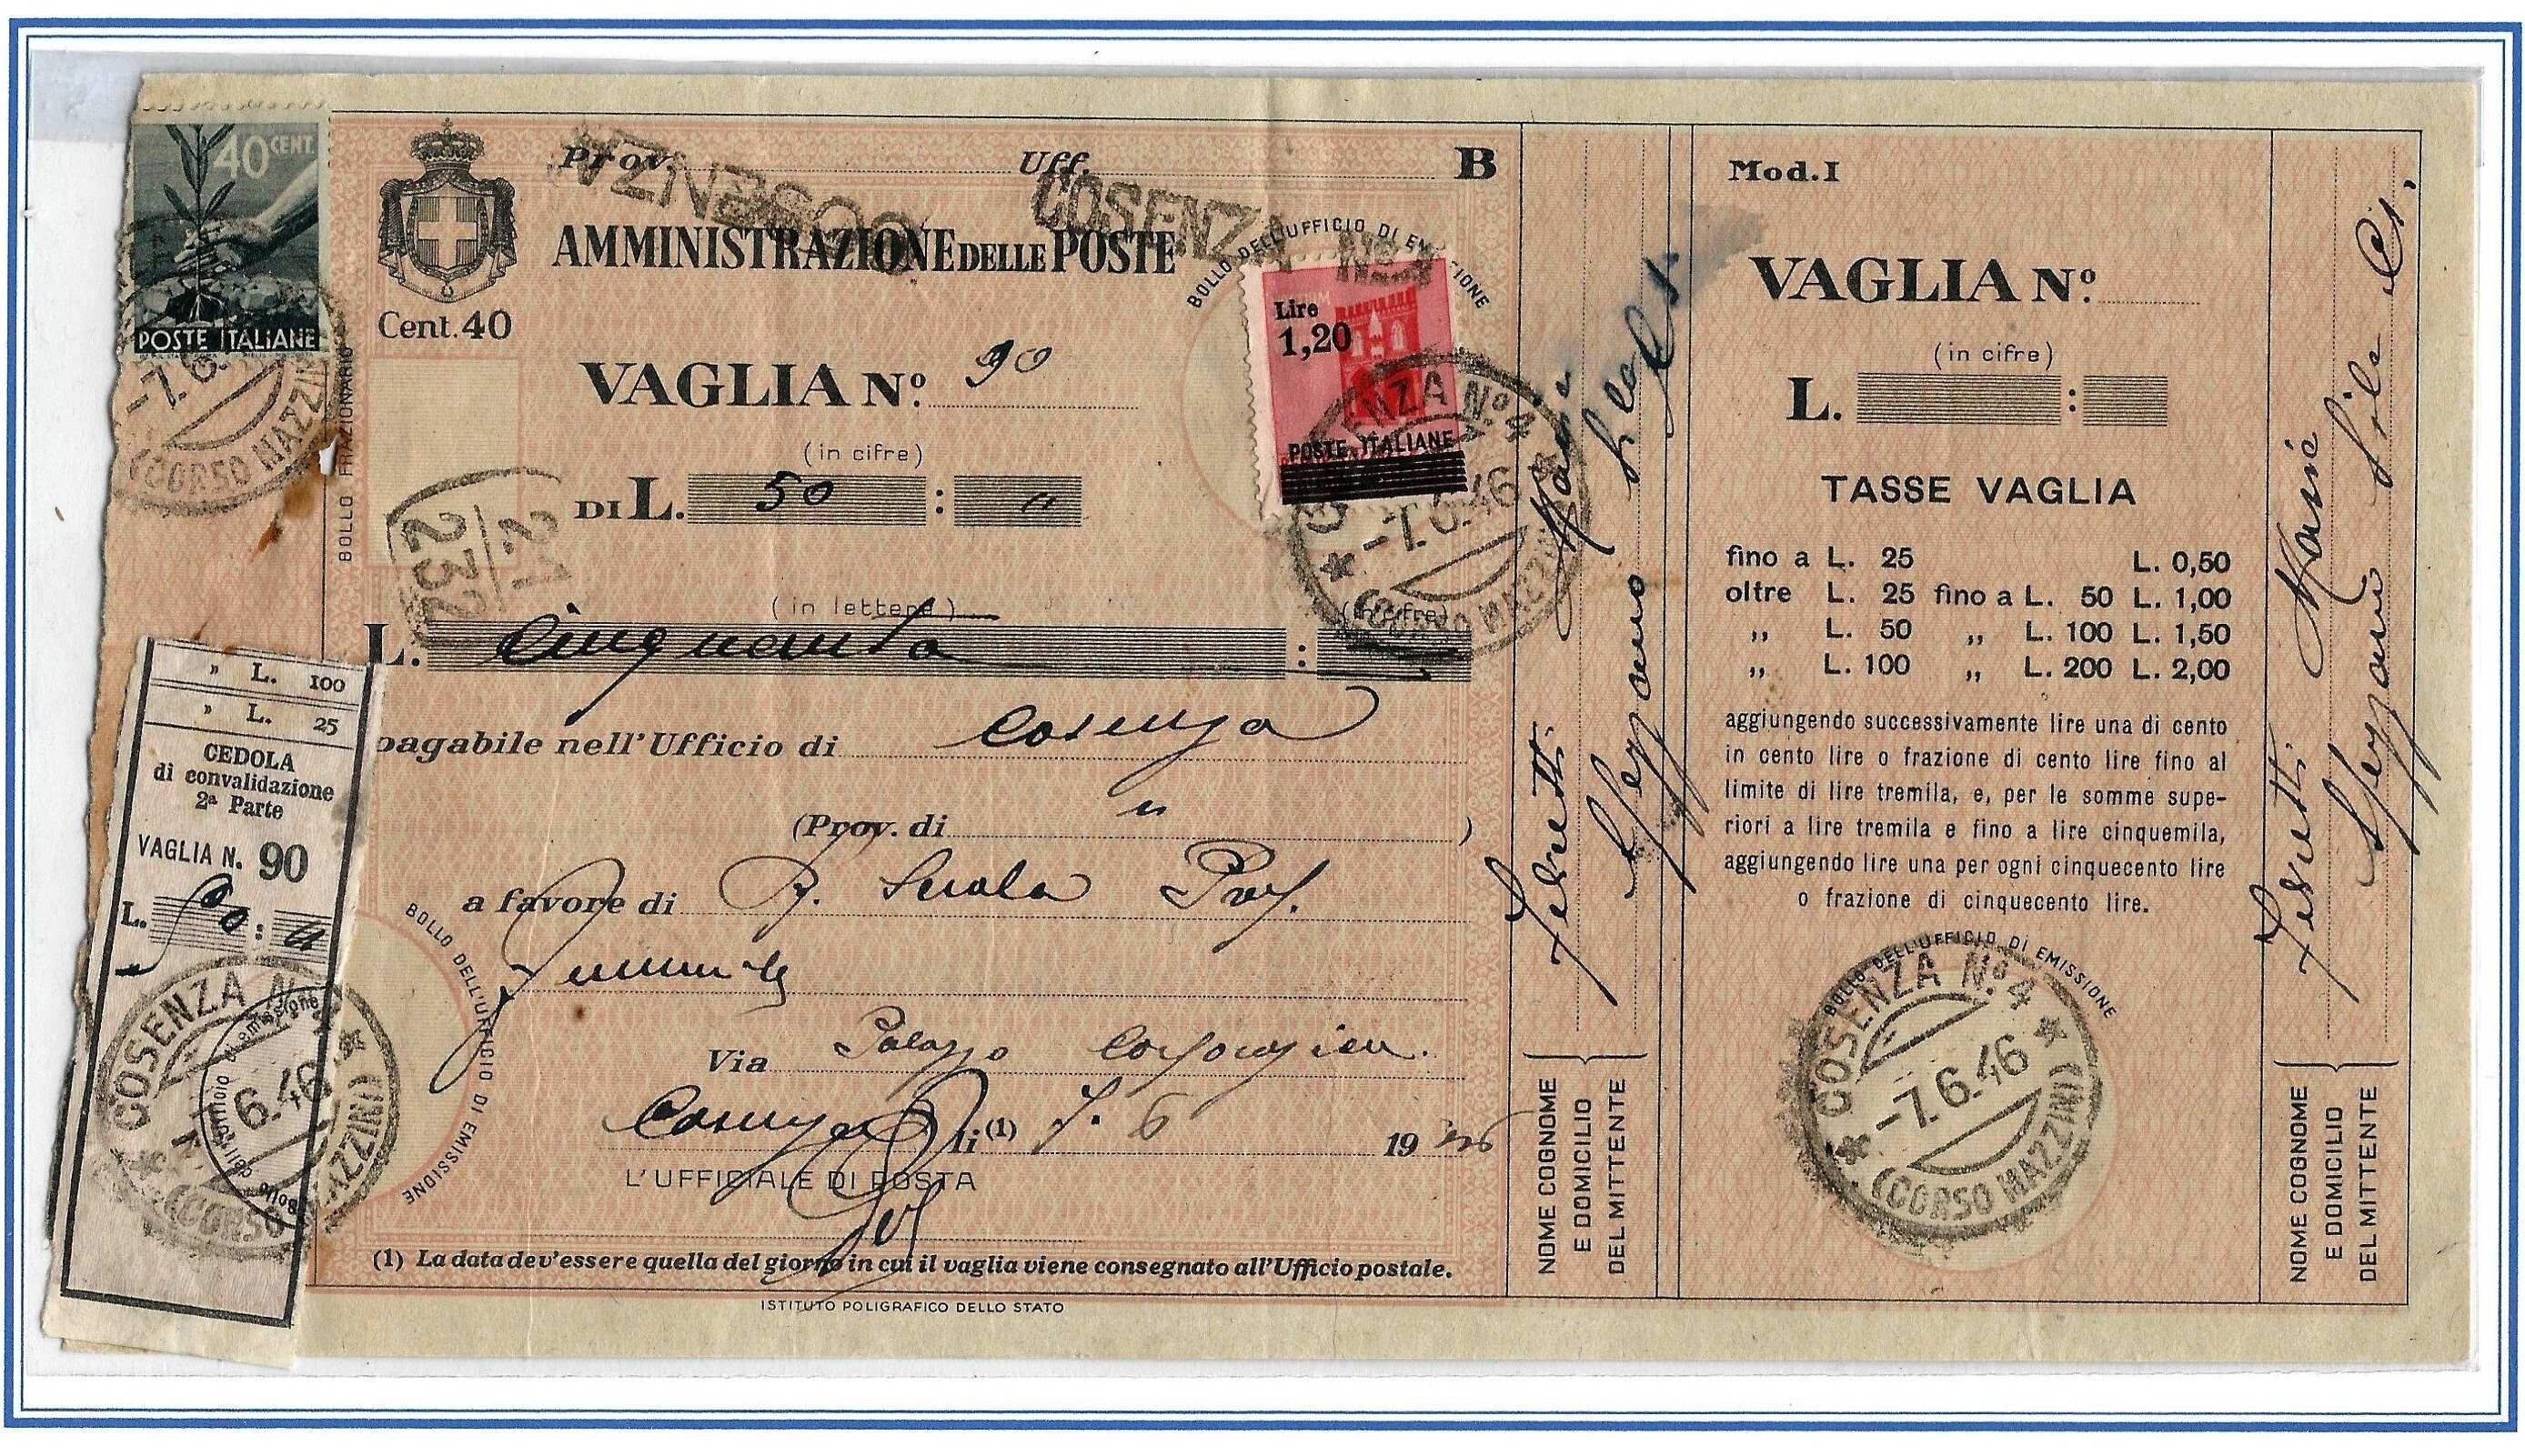 40 CENT.
POSTE ITALIANE
-7.6.
(CORSO MAZZINI)
Prov.
COSENZA
Uff.
COSENZA No 4
B
AMMINISTRAZIONE DELLE POSTE
Cent. 40
BOLLO FRAZIONARIO
VAGLIA No. 90
(in cifre)
DI L. 50 : "
BOLLO DELL'UFFICIO DI EMISSIONE
Lire
1,20
POSTE ITALIANE
COSENZA No. 4
-7.6.46
(CORSO MAZZINI)
21
232
(in lettere)
(in cifre)
L. Cinquanta :
pagabile nell'Ufficio di Cosenza
(Prov. di " )
a favore di Scuola Prof.
Femminile
Via Palazzo
Cosenza li (1) 7. 6 1946
L'UFFICIALE DI POSTA
BOLLO DELL'UFFICIO DI EMISSIONE
(1) La data dev'essere quella del giorno in cui il vaglia viene consegnato all'Ufficio postale.
ISTITUTO POLIGRAFICO DELLO STATO
" L. 100
" L. 25
CEDOLA
di convalidazione
2a Parte
VAGLIA N. 90
L. 50 : "
Bollo dell'ufficio di emissione
COSENZA No. 4
6.46
(CORSO MAZZINI)
Spezzano Sila Cs.
NOME COGNOME
E DOMICILIO
DEL MITTENTE
Mod. I
VAGLIA No.
(in cifre)
L. :
TASSE VAGLIA
fino a L. 25 L. 0,50
oltre L. 25 fino a L. 50 L. 1,00
,, L. 50 ,, L. 100 L. 1,50
,, L. 100 ,, L. 200 L. 2,00
aggiungendo successivamente lire una di cento
in cento lire o frazione di cento lire fino al
limite di lire tremila, e, per le somme supe-
riori a lire tremila e fino a lire cinquemila,
aggiungendo lire una per ogni cinquecento lire
o frazione di cinquecento lire.
BOLLO DELL'UFFICIO DI EMISSIONE
COSENZA No. 4
-7.6.46
(CORSO MAZZINI)
Spezzano Sila Cs.
NOME COGNOME
E DOMICILIO
DEL MITTENTE